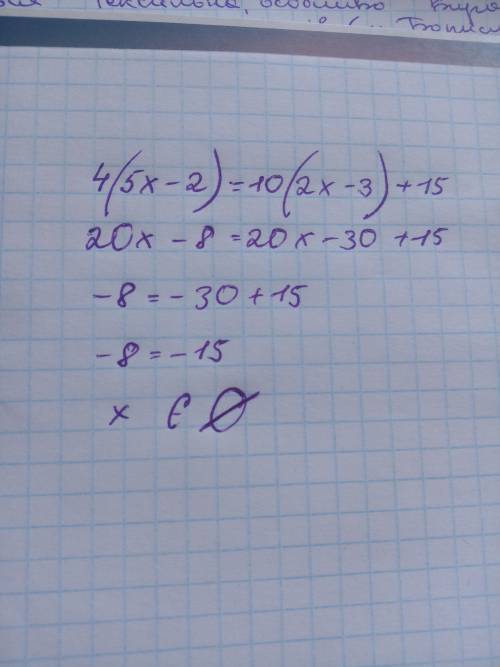 особливо
4(5x-2)=10(2x-3)+15
20x-8=20x-30+15
-8=-30+15
-8=-15
x ∈ ∅